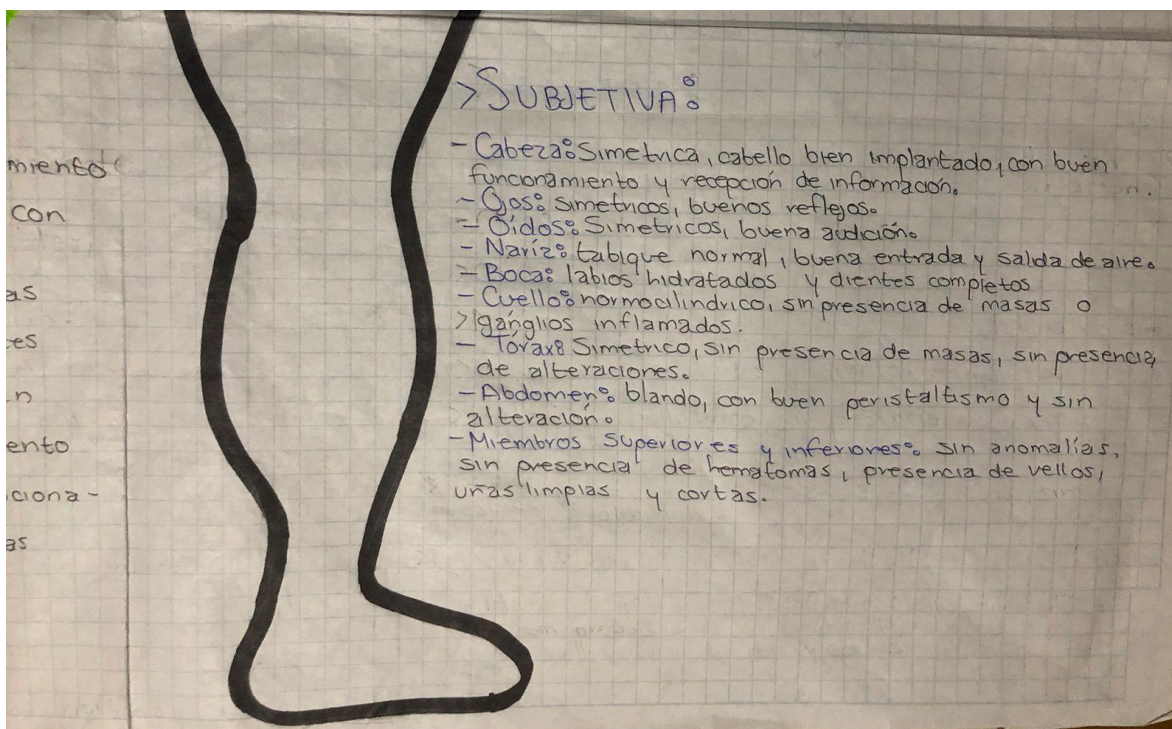 miento
con
as
es
n
ento
ciona-
as
>SUBJETIVA:
- Cabeza: Simetrica, cabello bien implantado, con buen
funcionamiento y recepción de información.
- Ojos: simetricos, buenos reflejos.
- Oídos: Simetricos, buena audición.
- Naríz: tabique normal, buena entrada y salida de aire.
- Boca: labios hidratados y dientes completos
- Cuello: normocilindrico, sin presencia de masas o
> gánglios inflamados.
- Tórax: Simetrico, sin presencia de masas, sin presencia
de alteraciones.
- Abdomen: blando, con buen peristaltismo y sin
alteración.
- Miembros Superiores y inferiores: sin anomalías,
sin presencia de hematomas, presencia de vellos,
uñas limpias y cortas.